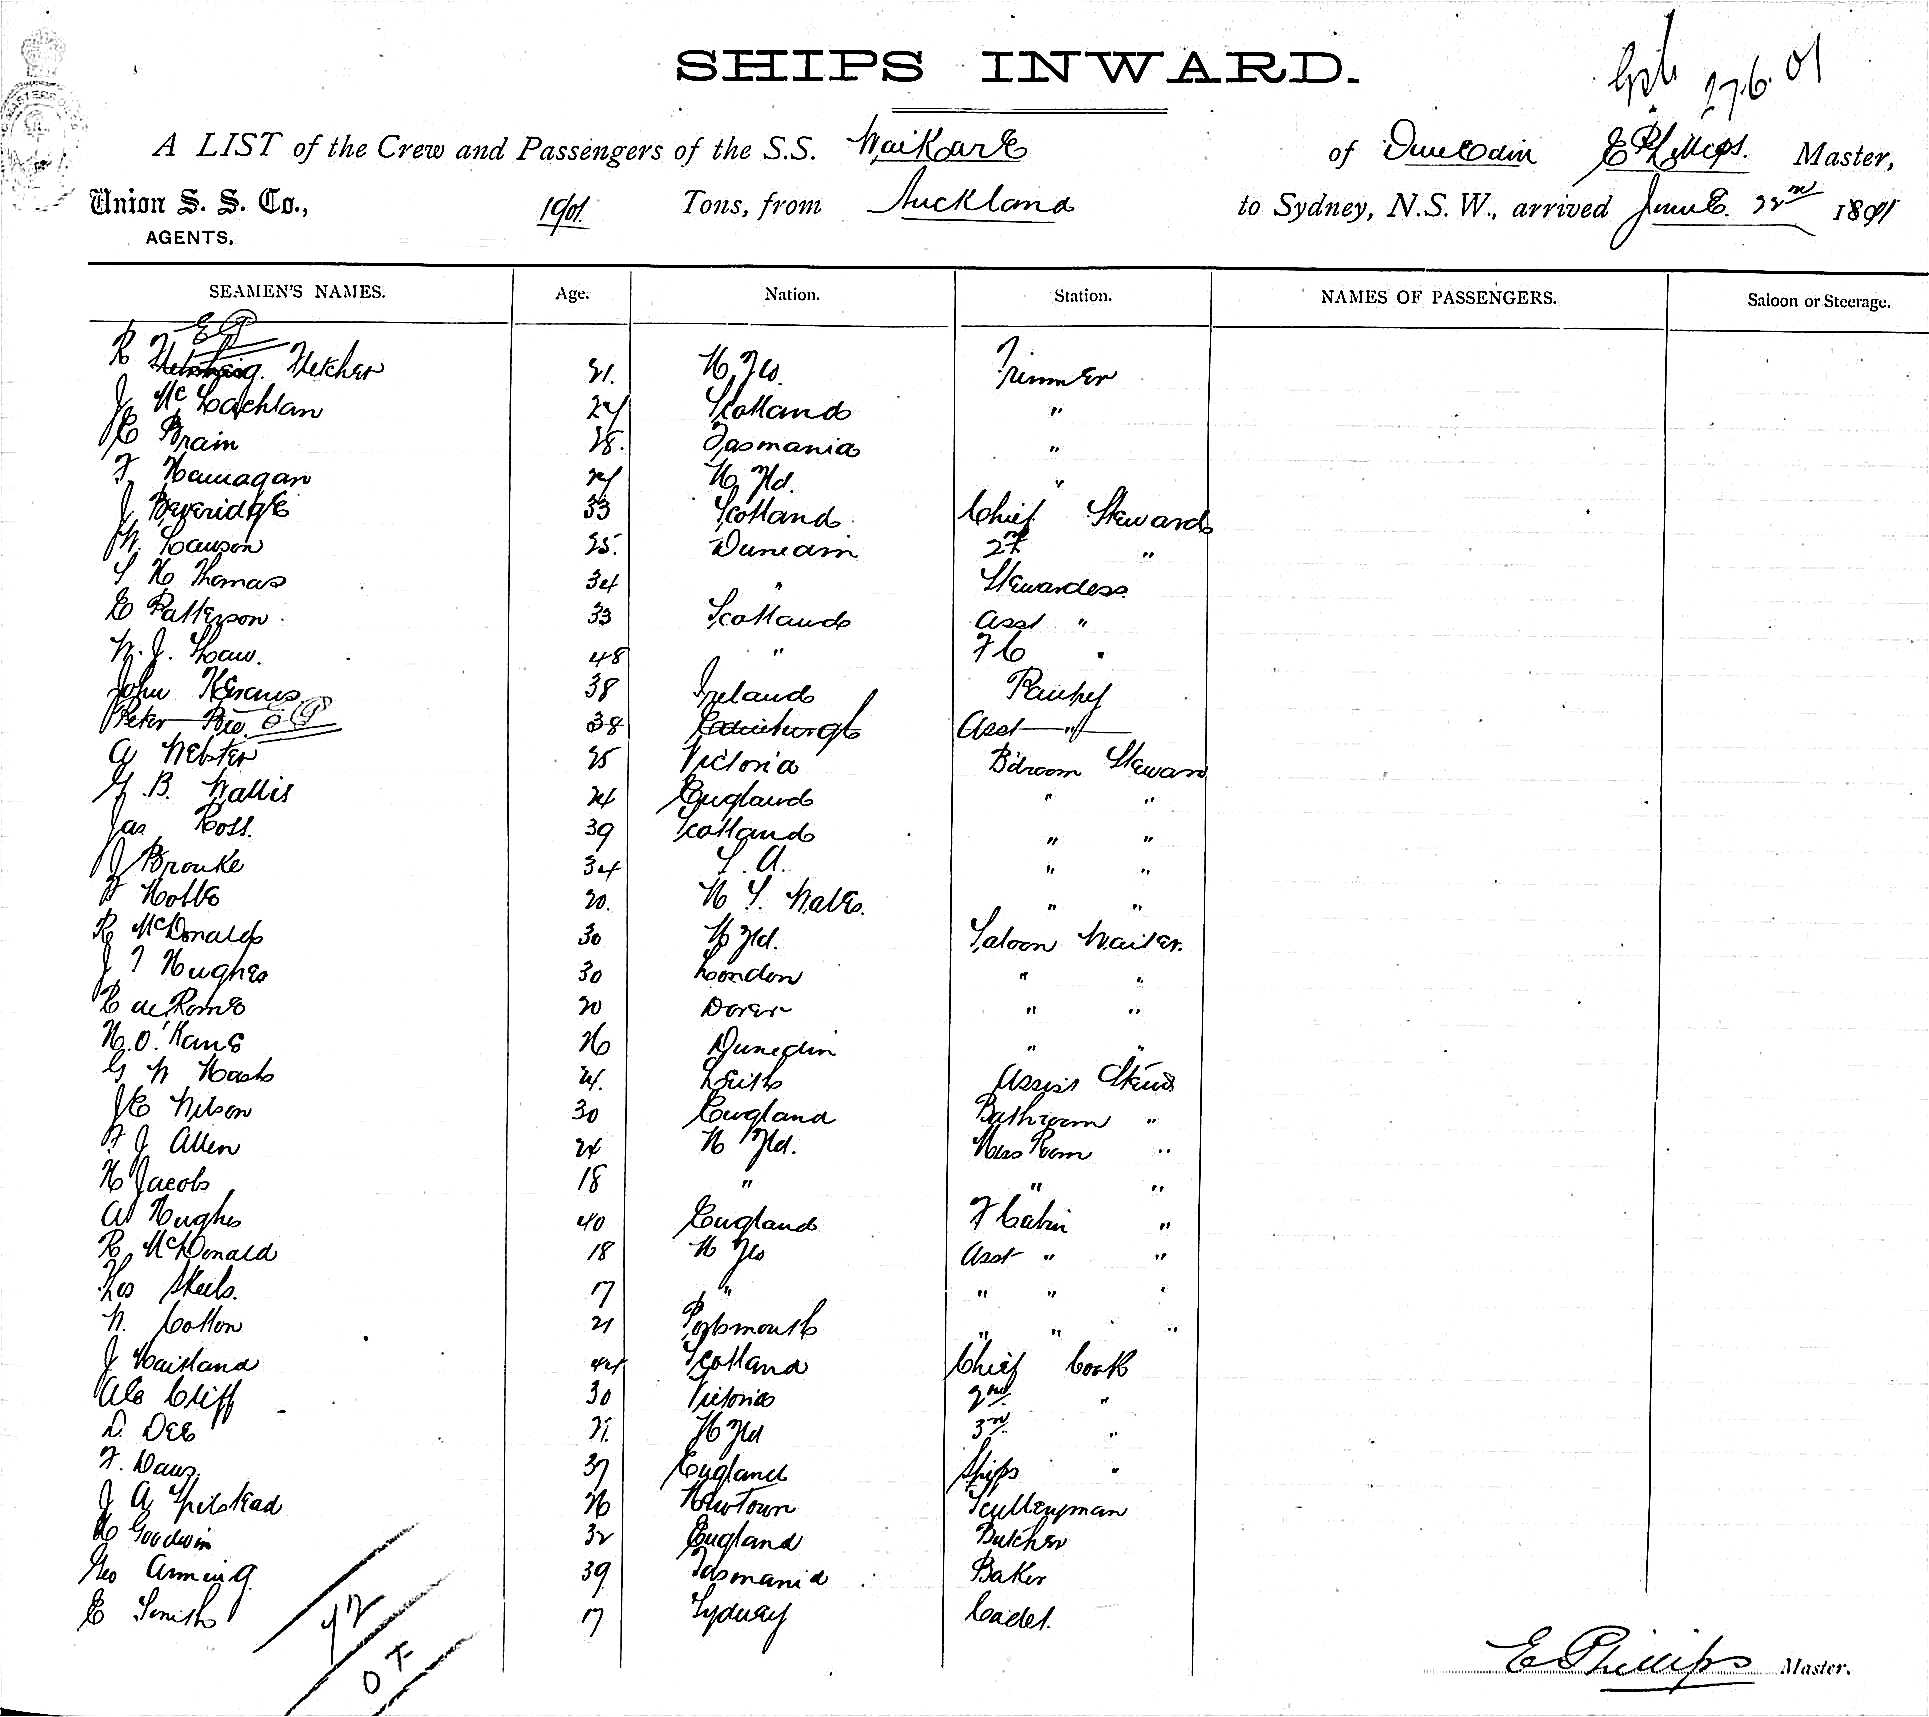 27.6.01
SHIPS INWARD.
A LIST of the Crew and Passengers of the S.S. WaiKarE of DunEdin EPhillips. Master,
Union S. S. Co., 1901. Tons, from Auckland to Sydney, N.S.W., arrived JunE. 22nd 1891
AGENTS.
SEAMEN'S NAMES. Age. Nation. Station. NAMES OF PASSENGERS. Saloon or Steerage.
EP
R Fletcher 21. N. Zld. Trimmer
J McLachlan 24 Scotland "
E Brain 28. Tasmania "
F Hannagan 24 N Zld. "
J BeveridgE 33 Scotland Chief Steward
Lawson 25. Dunedin 2nd "
S H Thomas 34 " Stewardess
E Patterson 33 Scotland Asst "
W. J. Shaw. 48 " F C "
John KEvans 38 Ireland Pantry
Peter EP 38 Edinburgh Asst "
A Webster 25 Victoria Bdroom Steward
G. B. Wallis 24 England " "
Jas Ross. 39 Scotland " "
J Brooke 34 S. A. " "
F HobbS 20. N S. WalEs. " "
R McDonald 30 N Zld. Saloon Waiter.
J T Hughes 30 London " "
E de RomE 20 Dover " "
H. O'KanE 26 Dunedin " "
G W Nash 24. Leith Assist Stewd
J E Wilson 30 England Bathroom "
F J Allen 24 N Zld. Mess Room "
H Jacobs 18 " " "
A Hughes 40 England F Cabin "
R McDonald 18 N Zld Asst " "
Thos Skeels. 17 " " " "
W. Cotton 21 Portsmouth " " "
J Maitland 44 Scotland Chief Cook
Cliff 30 Victoria 2nd "
D. DEE 21. N Zld 3rd "
F. Daws. 37 England Ships "
J A SpilstEad 26 NewTown Sculleryman
H Goodwin 32 England Butcher
Geo Arming 39 Tasmania Baker
E Smith 17 Sydney Cadet.
72
EPhillips Master.